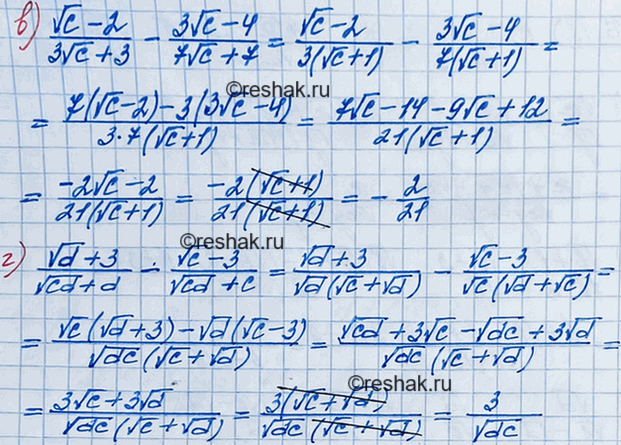 в) (√c − 2)/(3√c + 3) − (3√c − 4)/(7√c + 7) = (√c − 2)/(3(√c + 1)) − (3√c − 4)/(7(√c + 1)) =
©reshak.ru
= (7(√c − 2) − 3(3√c − 4))/(3·7(√c + 1)) = (7√c − 14 − 9√c + 12)/(21(√c + 1)) =
= (−2√c − 2)/(21(√c + 1)) = (−2(√c + 1))/(21(√c + 1)) = −2/21
©reshak.ru
г) (√d + 3)/(√cd + d) − (√c − 3)/(√cd + c) = (√d + 3)/(√d(√c + √d)) − (√c − 3)/(√c(√d + √c)) =
= (√c(√d + 3) − √d(√c − 3))/(√dc(√c + √d)) = (√cd + 3√c − √dc + 3√d)/(√dc(√c + √d)) =
©reshak.ru
= (3√c + 3√d)/(√dc(√c + √d)) = (3(√c + √d))/(√dc(√c + √d)) = 3/√dc